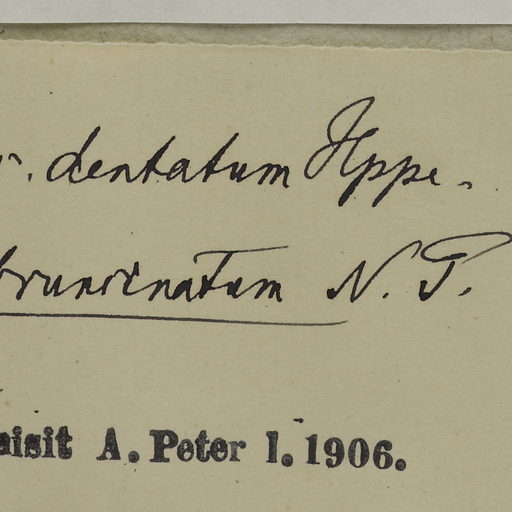 r. dentatum Hppe.
bruncinatum N. P.
uisit A. Peter 1. 1906.